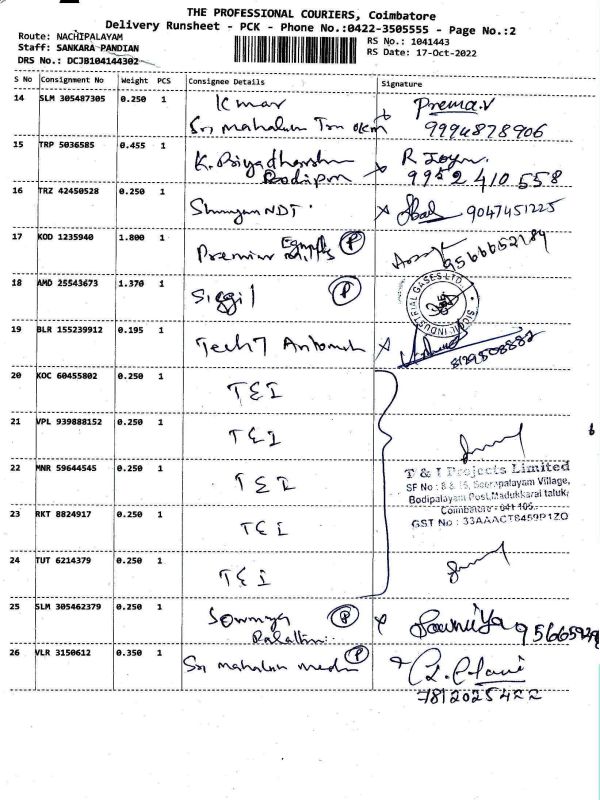 THE PROFESSIONAL COURIERS, Coimbatore
Delivery Runsheet - PCK - Phone No.:0422-3505555 - Page No.:2
Route: NACHIPALAYAM
Staff: SANKARA PANDIAN
DRS No.: DCJB104144302
RS No.: 1041443
RS Date: 17-Oct-2022
S No Consignment No Weight PCS Consignee Details Signature
14 SLM 305487305 0.250 1 Kmar Prema.V
Sri mahalum 9994878906
15 TRP 5036585 0.455 1 K. Priyadharshn R
9952 410 558
16 TRZ 42450528 0.250 1 9047451225
17 KOD 1235940 1.800 1 Premier Mills P
9566652184
18 AMD 25543673 1.370 1 Siggil P
INDUSTRIAL GASES LTD.
19 BLR 155239912 0.195 1 Tech7
8129508882
20 KOC 60455802 0.250 1 T&I
21 VPL 939888152 0.250 1 T&I
22 MNR 59644545 0.250 1 T&I
T & I Projects Limited
SF No : 8 & 15, Seerapalayam Village,
Bodipalayam Post, Madukkarai taluk,
Coimbatore - 641 105.
GST No : 33AAACT8459P1ZO
23 RKT 8824917 0.250 1 T&I
24 TUT 6214379 0.250 1 T&I
25 SLM 305462379 0.250 1 Sowmya P Sowmiya
26 VLR 3150612 0.350 1 Sri mahalum P
7812025422